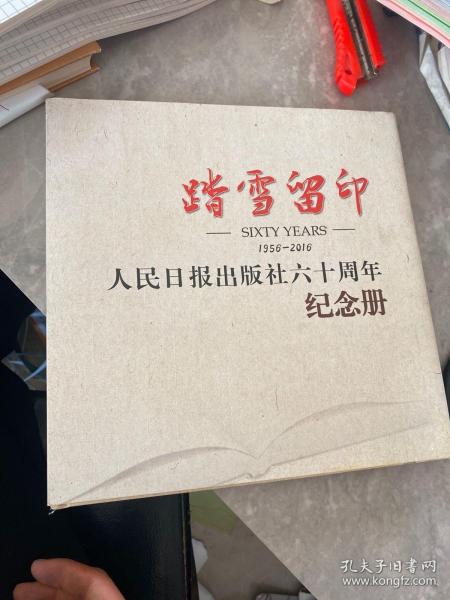 踏雪留印
SIXTY YEARS
1956-2016
人民日报出版社六十周年
纪念册
孔夫子旧书网
www.kongfz.com